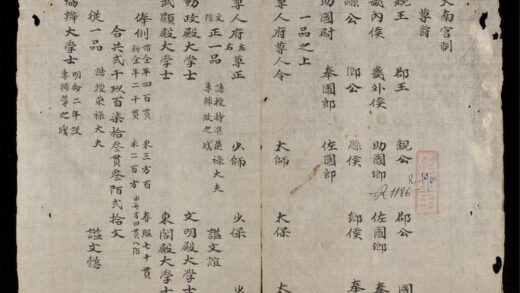 大南官制
尊爵
親王 郡王 親公 郡公 國
畿內侯 畿外侯 助國鄉 佐國鄉 奉
縣公 鄉公 縣侯 鄉侯 奉
助國尉 奉國郎 佐國郎
一品之上
尊人府尊人令 太師 太保
尊人府左右尊正 少師 少保 少
文階 正一品 誥授特進榮祿大夫 專輔政之職 諡文誼
勤政殿大學士 文明殿大學士
武顯殿大學士 東閣殿大學士
俸例 全年四百貫 新全年二千貫 米三方百 米二百方 春服七十貫
合共貳千玖百柒拾叁貫叁陌貳拾文
從一品 誥授榮祿大夫 諡文懿
協辦大學士 明命二年設 專輔